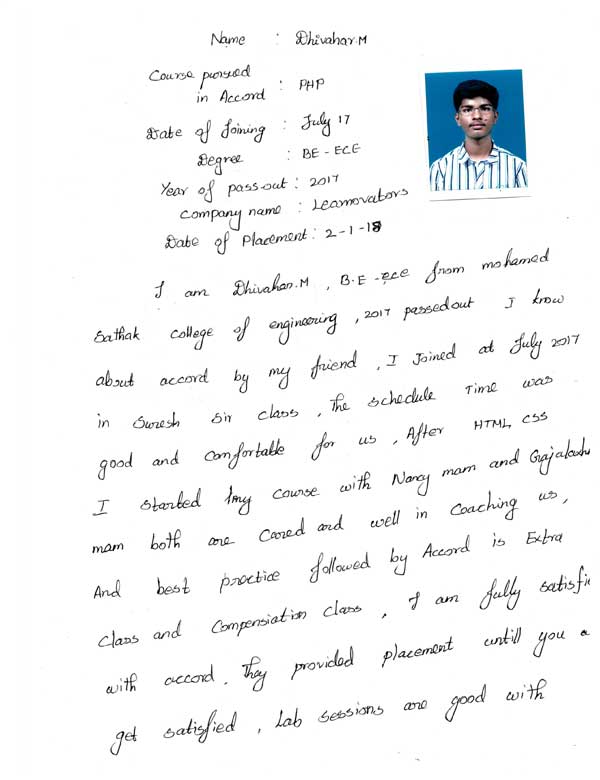 Name : Dhivahar.M
Course pursed
in Accord : PHP
Date of Joining : July 17
Degree : BE - ECE
Year of pass-out : 2017
Company name : Learnovators
Date of Placement : 2-1-18
I am Dhivahar.M , B.E -ece from mohamed
Sathak College of engineering , 2017 passedout I know
about accord by my friend , I Joined at July 2017
in Suresh Sir class , The schedule Time was
good and comfortable for us , After HTML CSS
I started my course with Nancy mam and
mam both are Cared and well in Coaching us,
And best practice followed by Accord is Extra
Class and Compensiation class , I am fully
with accord. They provided placement untill you
get satisfied , Lab sessions are good with